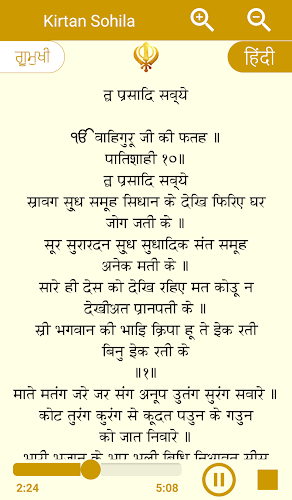 Kirtan Sohila
ਗੁਰਮੁਖੀ
हिंदी
त्व प्रसादि सव्ये
ੴ वाहिगुरू जी की फतह ॥
पातिशाही १०॥
त्व प्रसादि सव्ये
स्रावग सुध समूह सिधान के देखि फिरिए घर
जोग जती के ॥
सूर सुरारदन सुध सुधादिक संत समूह
अनेक मती के ॥
सारे ही देस को देखि रहिए मत कोउू न
देखीअत प्रानपती के ॥
स्री भगवान की भाइि क्रिपा हू ते इेक रती
बिनु इेक रती के
॥१॥
माते मतंग जरे जर संग अनूप उतंग सुरंग सवारे ॥
कोट तुरंग कुरंग से कूदत पउुन के गउुन
को जात निवारे ॥
2:24
5:08